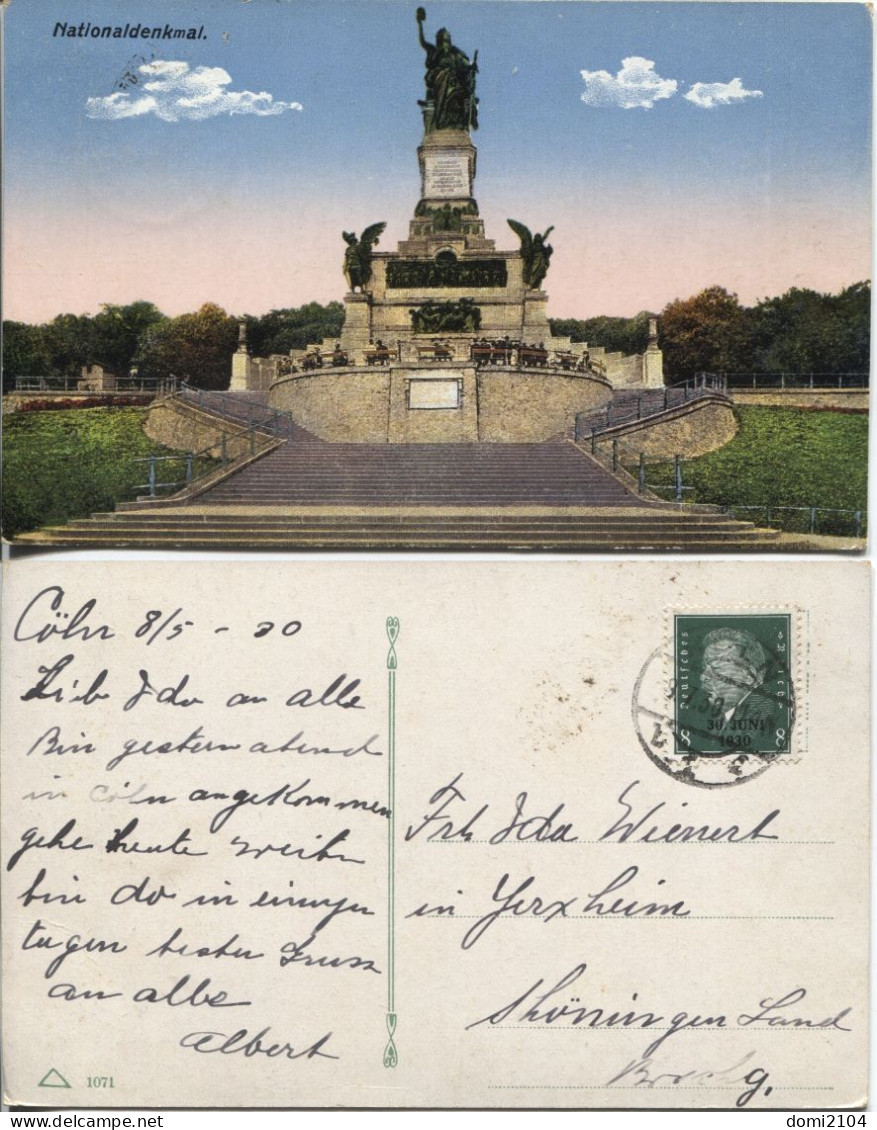 Nationaldenkmal.
Cöln 8/5 - 30
Lieb Ida an alle
Bin gestern abend
in Cöln angekommen
gehe heute weiter
bin do in einigen
tagen bester Gruss
an alle
Albert
1071
Deutsches Reich
30. JUNI
1930
8 8
Frl Ida Wienert
in Yerxheim
Shöningen Land
domi2104